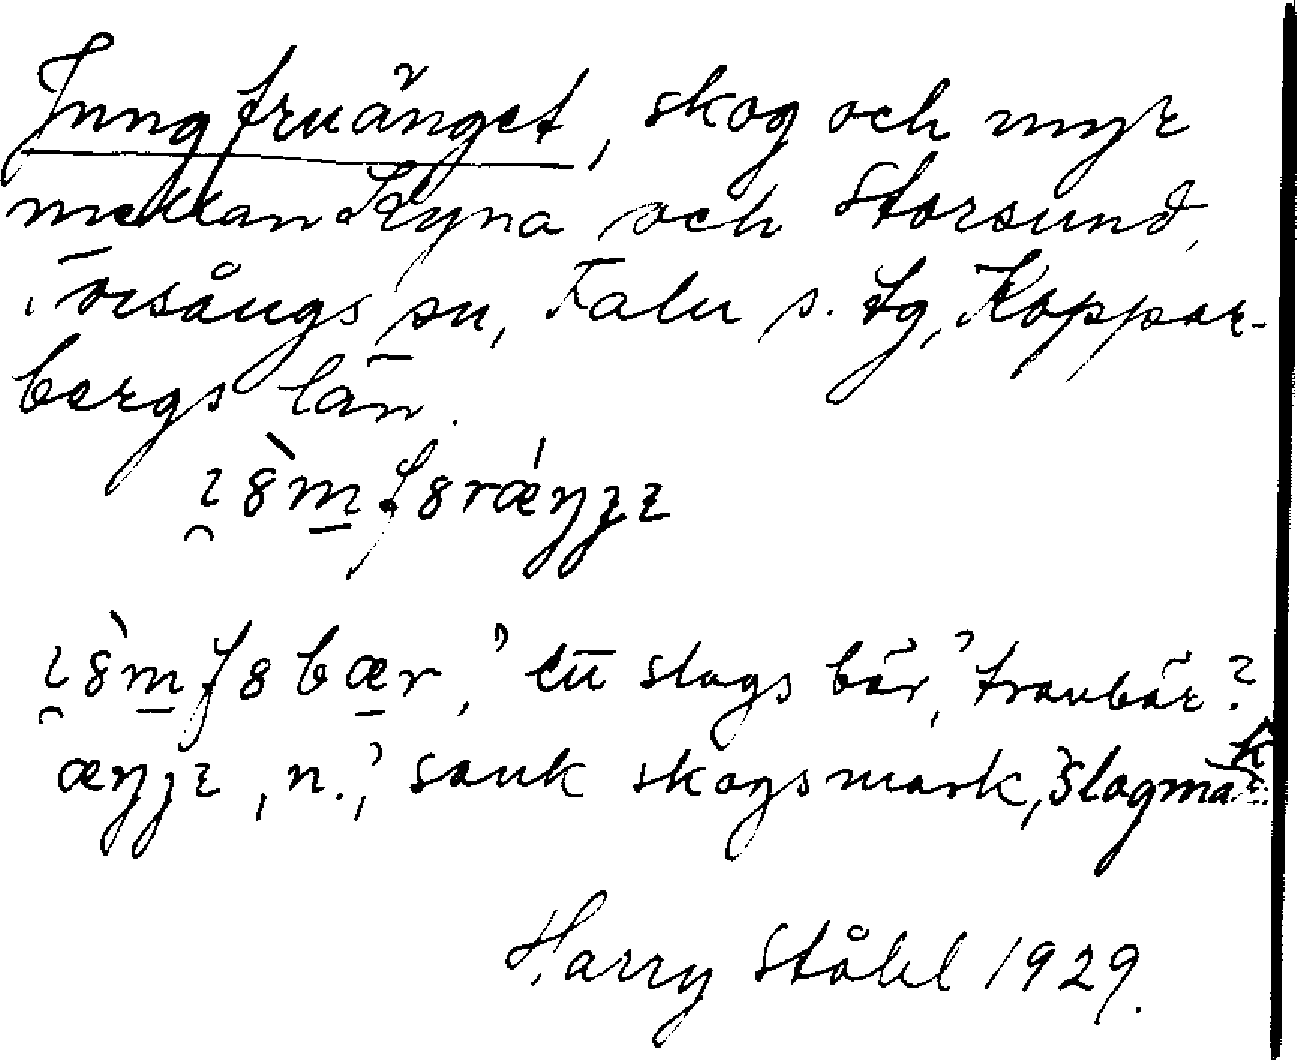 Jungfruänget, skog och myr
mellan Kyna och Storsund,
i Torsångs sn, Falu s. tg, Koppar-
bergs län.
ett slags bär, tranbär?
n., sank skogsmark, slogmark
Harry Ståhl 1929.